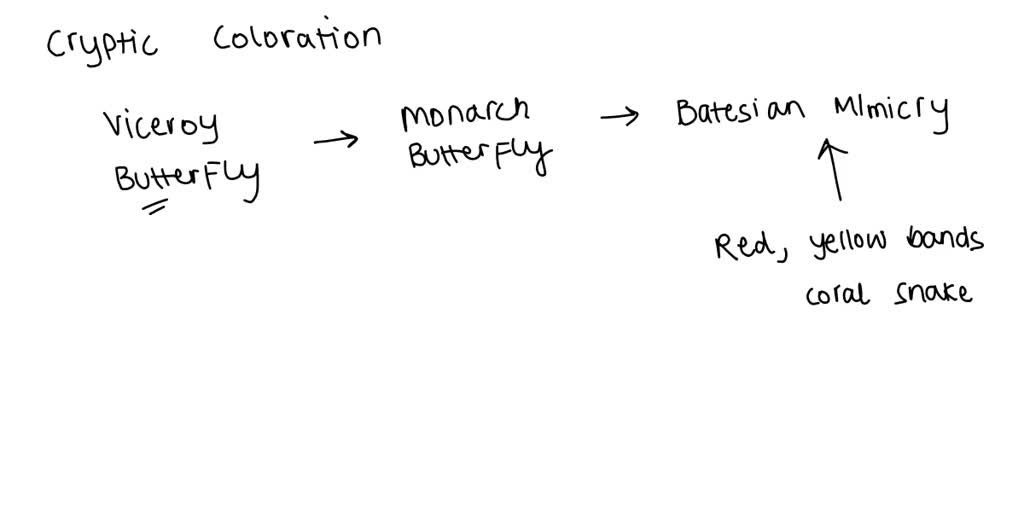 Cryptic Coloration
Viceroy
ButterFly
→
Monarch
ButterFly
→
Batesian MImicry
Red, yellow bands
coral snake